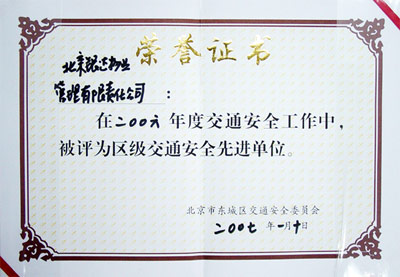 荣誉证书
北京银达物业
管理有限责任公司：
在二00六年度交通安全工作中，
被评为区级交通安全先进单位。
北京市东城区交通安全委员会
二00七年一月十日